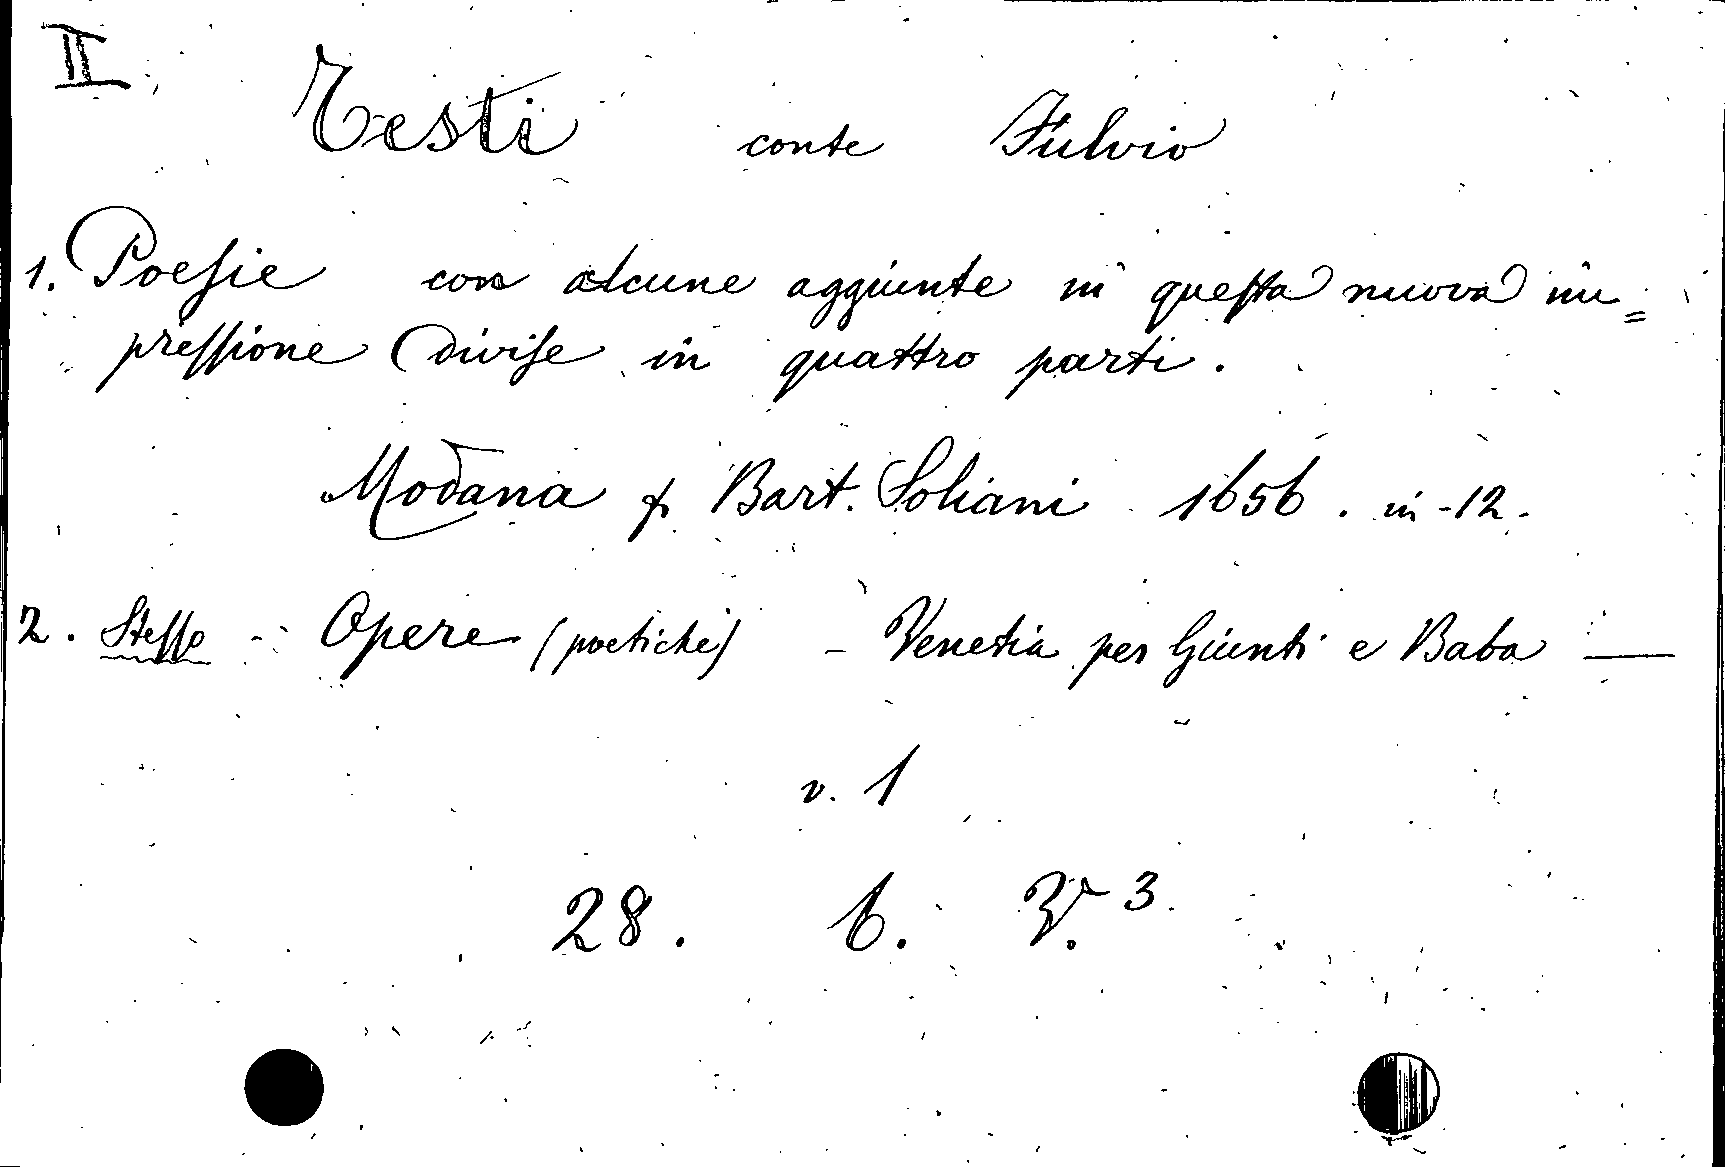 II
Testi conte Fulvio
1. Poesie con alcune aggiunte in questa nuova im=
pressione divise in quattro parti.
Modana p. Bart. Soliani 1656. in-12.
2. Stesso - Opere (poetiche) - Venetia per Giunti e Baba —
v. 1
28. 6. 3